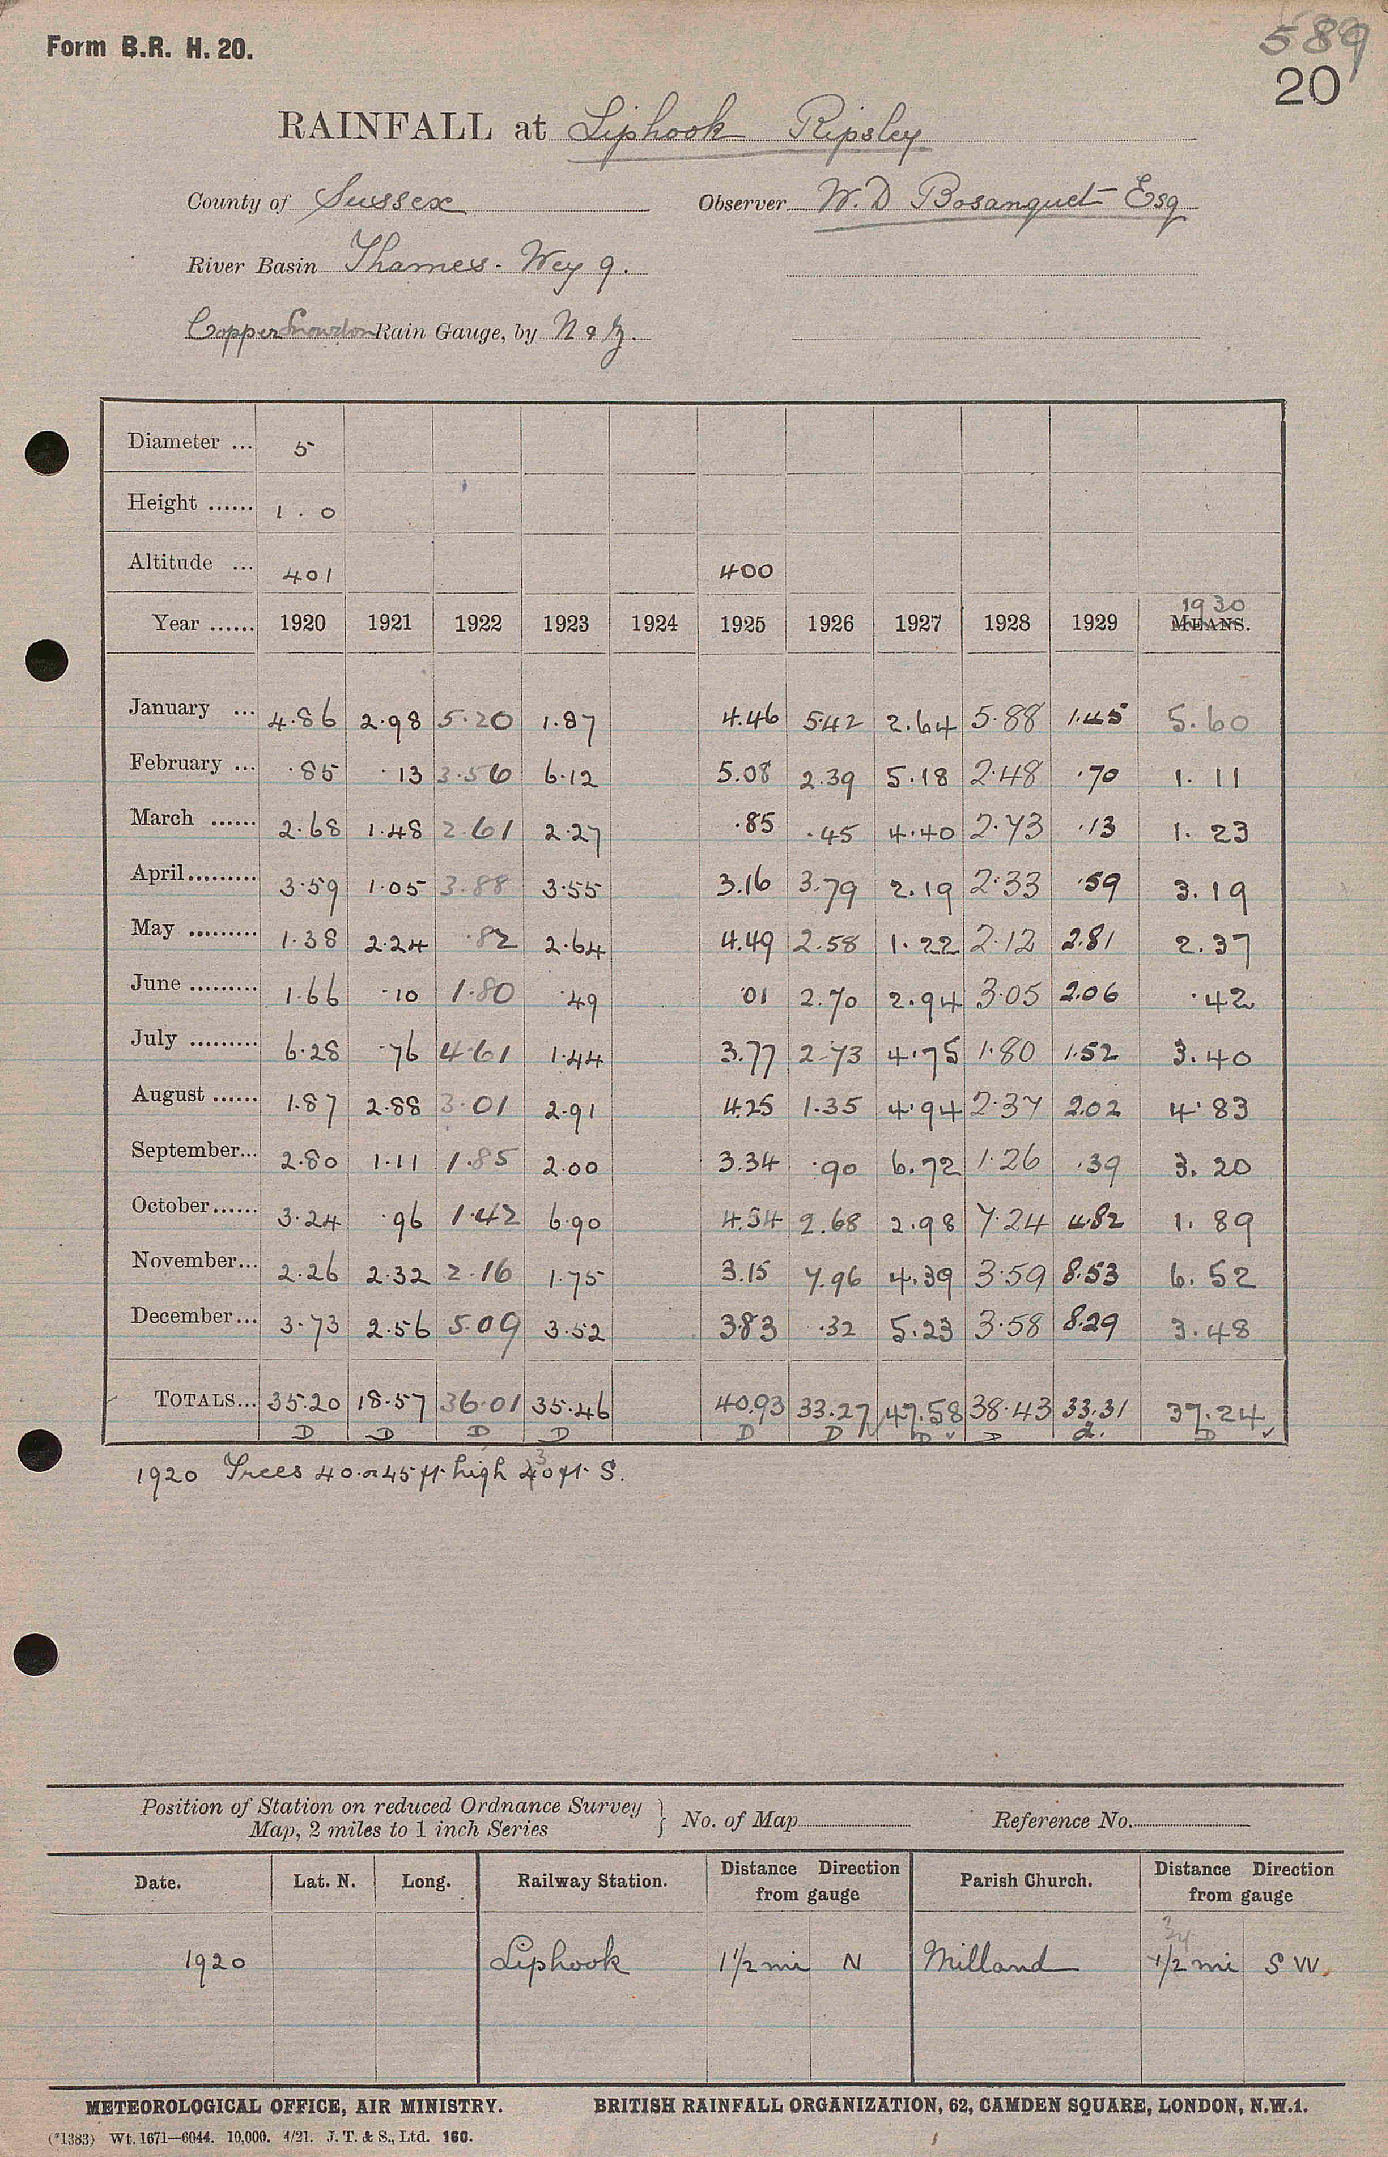 Form B.R. H. 20.
589
20
RAINFALL at Liphook Ripsley
County of Sussex Observer W. D Bosanquet Esq
River Basin Thames - Wey 9.
Copper Snowdon Rain Gauge, by N & Z.
Diameter ... 5
Height ...... 1 . 0
Altitude ... 401 400
1930
Year ...... 1920 1921 1922 1923 1924 1925 1926 1927 1928 1929 MEANS.
January ... 4.86 2.98 5.20 1.87 4.46 5.42 2.64 5.88 1.45 5.60
February ... .85 .13 3.56 6.12 5.08 2.39 5.18 2.48 .70 1.11
March ...... 2.68 1.48 2.61 2.27 .85 .45 4.40 2.73 .13 1.23
April......... 3.59 1.05 3.88 3.55 3.16 3.79 2.19 2.33 .59 3.19
May ......... 1.38 2.24 .82 2.64 4.49 2.58 1.22 2.12 2.81 2.37
June ......... 1.66 .10 1.80 .49 .01 2.70 2.94 3.05 2.06 .42
July ......... 6.28 .76 4.61 1.44 3.77 2.73 4.75 1.80 1.52 3.40
August ...... 1.87 2.88 3.01 2.91 4.25 1.35 4.94 2.37 2.02 4.83
September... 2.80 1.11 1.85 2.00 3.34 .90 6.72 1.26 .39 3.20
October...... 3.24 .96 1.42 6.90 4.54 2.68 2.98 7.24 4.82 1.89
November... 2.26 2.32 2.16 1.75 3.15 7.96 4.39 3.59 8.53 6.52
December... 3.73 2.56 5.09 3.52 3.83 .32 5.23 3.58 8.29 3.48
TOTALS... 35.20 18.57 36.01 35.46 40.93 33.27 47.58 38.43 33.31 37.24
D D D D D D D D d. D
1920 Trees 40 or 45 ft. high 30 ft. S.
Position of Station on reduced Ordnance Survey
Map, 2 miles to 1 inch Series } No. of Map Reference No.
Date. Lat. N. Long. Railway Station. Distance Direction from gauge Parish Church. Distance Direction from gauge
3/4
1920 Liphook 1 1/2 mi N Milland 1/2 mi S W.
METEOROLOGICAL OFFICE, AIR MINISTRY. BRITISH RAINFALL ORGANIZATION, 62, CAMDEN SQUARE, LONDON, N.W.1.
(*1383) Wt. 1671—6044. 10,000. 4/21. J. T. & S., Ltd. 160.